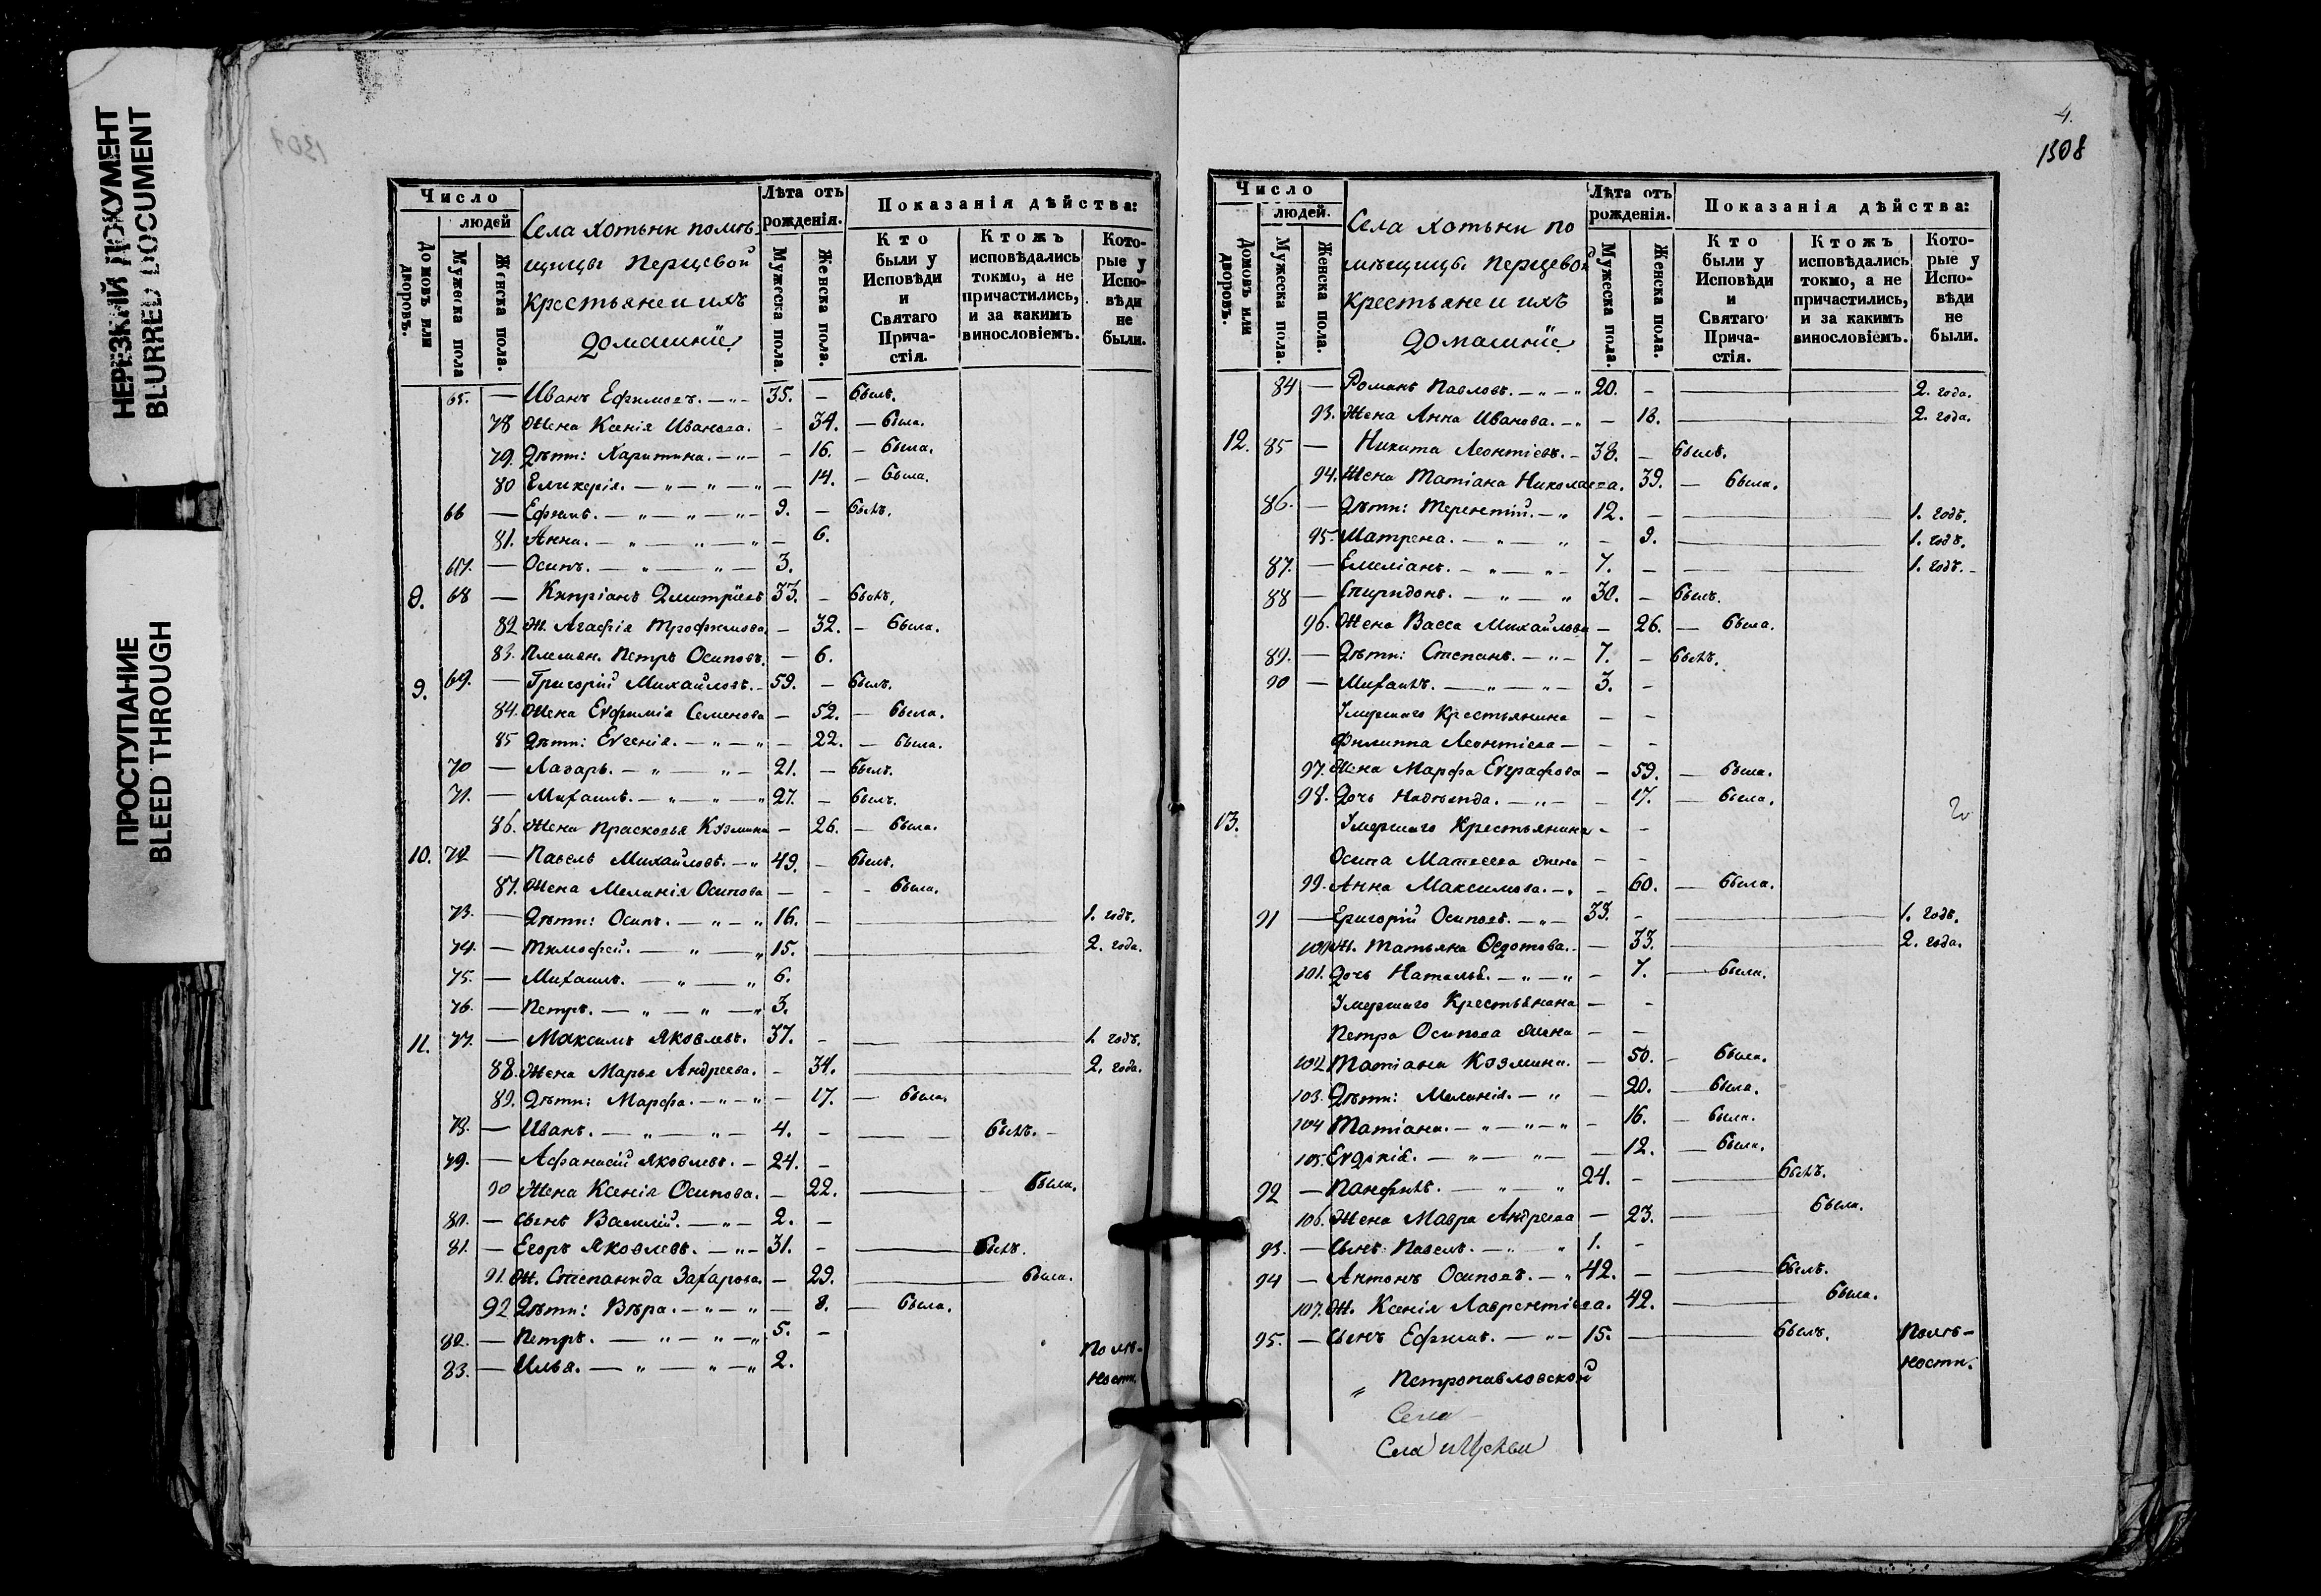 НЕРЕЗКИЙ ДОКУМЕНТ
BLURRED DOCUMENT
ПРОСТУПАНИЕ
BLEED THROUGH
Число
людей
Домовъ или дворовъ.
Мужеска пола
Женска пола.
Села Хотьни помѣ-
щицы Перцевой
крестьяне и ихъ
домашніе.
Лѣта отъ рожденія.
Мужеска пола.
Женска пола.
Показанія дѣйства:
Кто были у Исповѣди и Святаго Прича-стія.
Ктожъ исповѣдались токмо, а не причастились, и за какимъ винословіемъ.
Кото-рые у Испо-вѣди не были.
65. — Иванъ Ефимовъ. — „ — 35. — былъ.
78 Жена Ксенія Иванова. — 34. — была.
79. Дѣти: Харитина. — „ — — 16. — была.
80 Гликерія. — „ — „ — „ — 14. — была.
66 — Ефимъ. — „ — „ — „ — 9. — былъ.
81. Анна. — „ — „ — „ — 6.
67. — Осипъ. — „ — „ — 3.
8. 68 — Кипріанъ Дмитріевъ 33. — былъ.
82 Ж. Агафія Трофимова. — 32. — была.
83. Племян. Петръ Осиповъ. — 6.
9. 69. — Григорій Михайловъ. — 59. — былъ.
84. Жена Евфимія Семенова — 52. — была.
85 Дѣти: Евгенія. — „ — „ — 22. — была.
70 — Лазарь. — „ — „ — 21. — былъ.
71. — Михаилъ. — „ — „ — „ 27. — былъ.
86. Жена Прасковья Козмина — 26. — была.
10. 72 — Павелъ Михайловъ. — „ 49. — былъ.
87. Жена Меланія Осипова — — — была.
73. — Дѣти: Осипъ. — „ — „ 16. — 1. годъ.
74. — Тимофей. — „ — „ 15. — 2. года.
75. — Михаилъ. — „ — „ 6.
76. — Петръ. — „ — „ — „ 3.
11. 77. — Максимъ Яковлевъ. 37. — 1. годъ.
88. Жена Марья Андреева. — 34. — 2. года.
89. Дѣти: Марфа. — „ — „ — 17. — была.
78. — Иванъ. — „ — „ — 4. — былъ. —
79. — Афанасій Яковлевъ. — 24. —
90 Жена Ксенія Осипова. — 22. — была.
80. — Сынъ Василій. — „ — 2. —
81. — Егоръ Яковлевъ. — „ — 31. — былъ.
91. Ж. Степанида Захарова. — 29. — была.
92 Дѣти: Вѣра. — „ — „ — 8. — была.
82. — Петръ. — „ — „ — „ 5. —
83. — Илья. — „ — „ — „ 2.
По мѣ-
ности.
4.
1308
Число
людей.
Домовъ или дворовъ.
Мужеска пола.
Женска пола.
Села Хотьни по
мѣщицы Перцевой
крестьяне и ихъ
домашніе.
Лѣта отъ рожденія.
Мужеска пола.
Женска пола.
Показанія дѣйства:
Кто были у Исповѣди и Святаго Прича-стія.
Ктожъ исповѣдались токмо, а не причастились, и за какимъ винословіемъ.
Кото-рые у Испо-вѣди не были.
84 — Романъ Павловъ. — „ — „ 20. — 2. года.
93. Жена Анна Иванова. — „ — 18. — 2. года.
12. 85 — Никита Леонтіевъ. — 38. — былъ.
94. Жена Матіана Николаева. 39. — была.
86. — Дѣти: Терентій. — „ 12. — 1. годъ.
95. Матрена. — „ — „ — 9. — 1. годъ.
87. — Емиліанъ. — „ — „ — 7. — 1. годъ. —
88 — Спиридонъ. — „ — „ 30. — былъ.
96. Жена Васса Михайлова — 26. — была.
89. — Дѣти: Степанъ. — „ — 7. — былъ.
90 — Михаилъ. — „ — „ — 3. —
Умершаго Крестьянина — —
Филиппа Леонтіева — — —
97. Жена Марфа Евграфова — 59. — была.
98. Дочь Надѣжда. — „ — — 17. — была.
13. Умершаго Крестьянина — —
Осипа Матвеева жена — —
99. Анна Максимова. — „ — 60. — была.
91 — Григорій Осиповъ. — „ — 33. — 1. годъ.
100 Ж. Татьяна Ѳедотова. — 33. — 2. года.
101. Дочь Наталья. — „ — „ — 7. — была.
Умершаго Крестьянина — —
Петра Осипова жена — —
102 Татіана Козмина. — 50. — была.
103. Дѣти: Меланія. — „ — 20. — была.
104 Татіана. — „ — „ — „ — 16. — была.
105. Евдокія. — „ — „ — — 12. — была.
92 — Панфилъ. — „ — „ 24. — былъ.
106. Жена Мавра Андреева — 23. — была.
93. — Сынъ Павелъ. — „ — „ 1. —
94 — Антонъ Осиповъ. — „ 42. — былъ.
107. Ж. Ксенія Лаврентіева. 42. — была.
95. — Сынъ Ефимъ. — „ — 15. — былъ.
Помѣ-
ности.
„ Петропавловской
Села